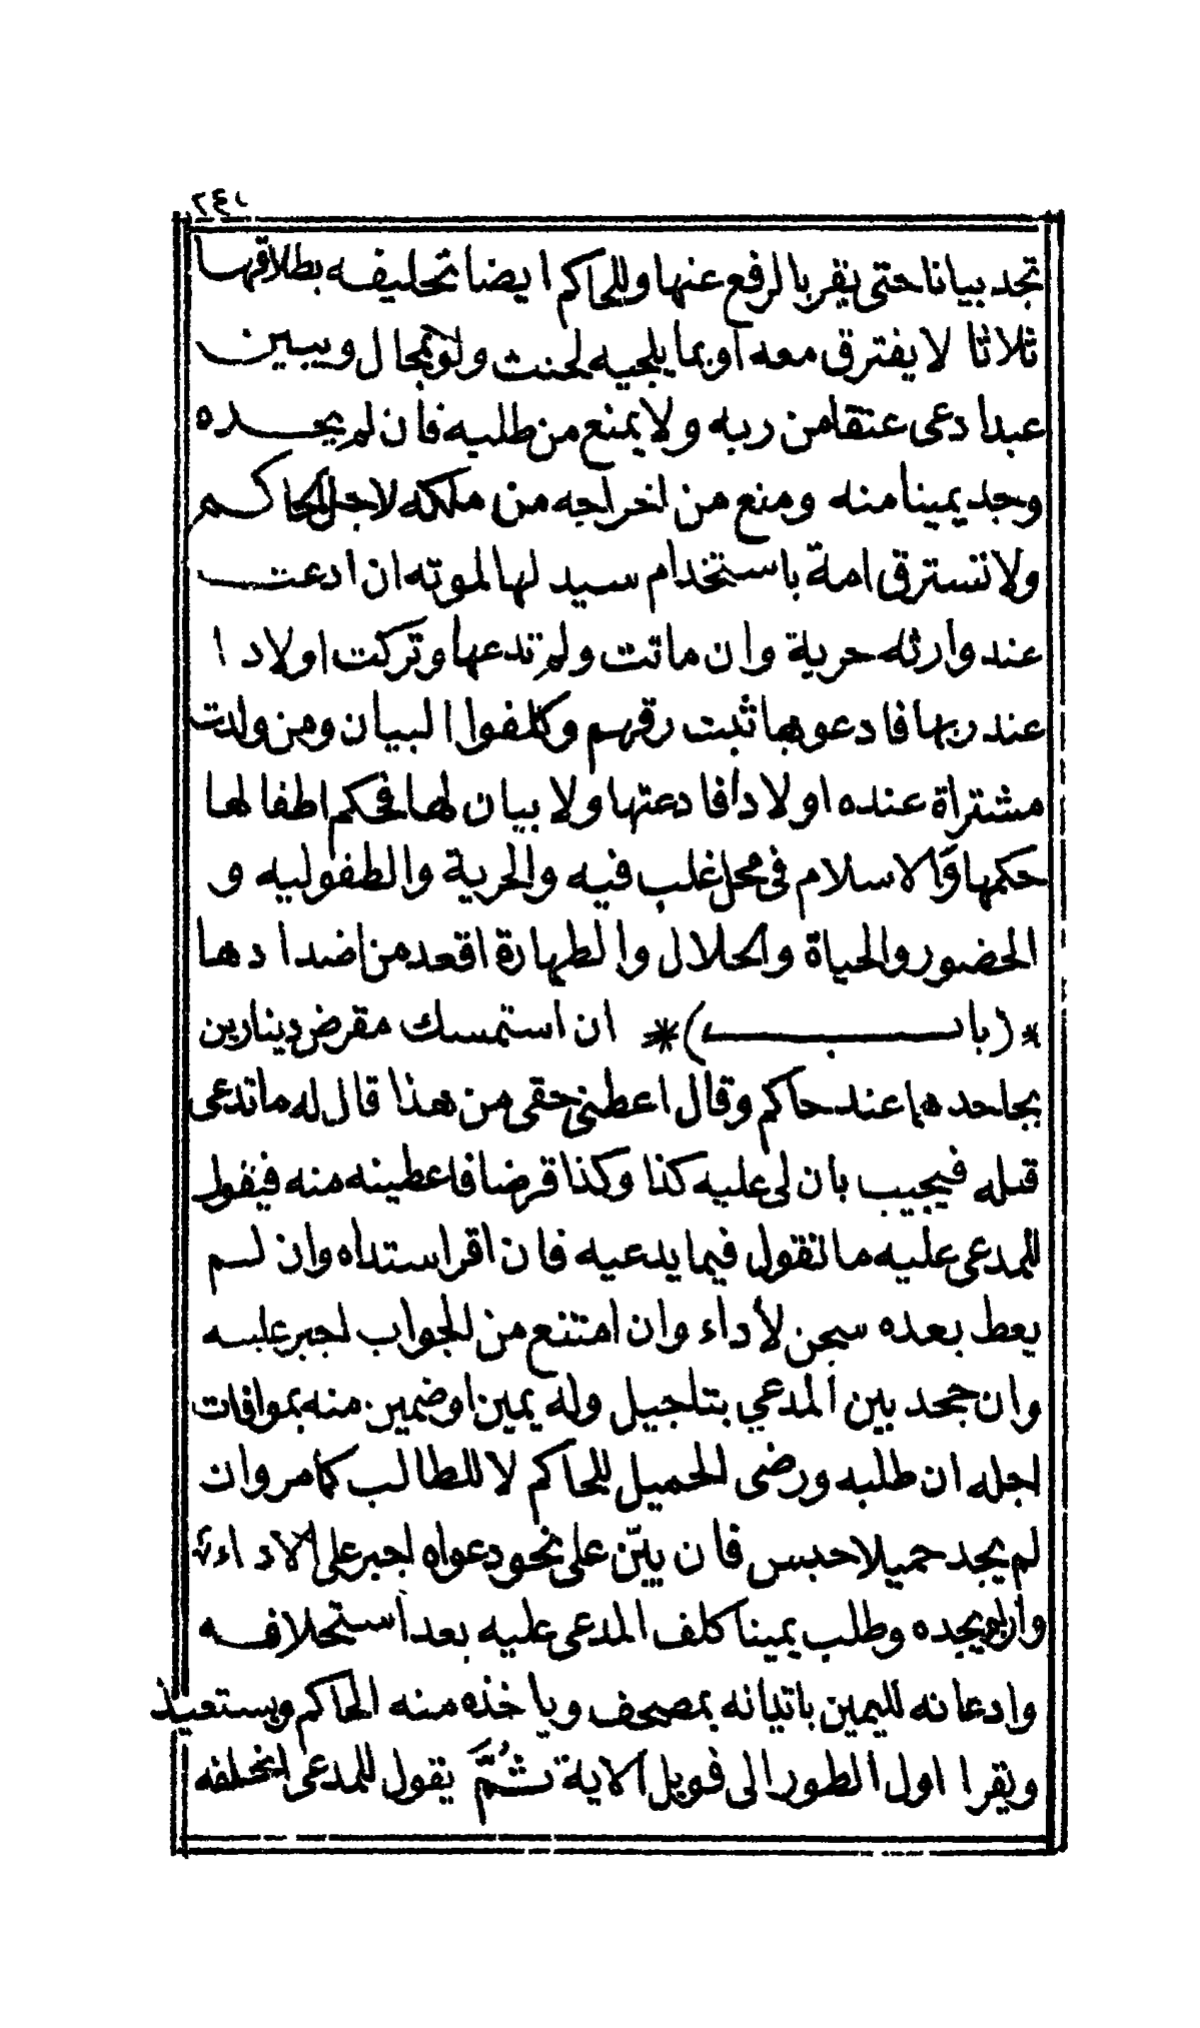 ٢٤١
تجد بيانا حتى يقر بالرفع عنها وللحاكم ايضا تحليفه بطلاقها
ثلاثا لا يفترق معه أو بما يلجيه لحنث ولو بمحال ويبين
عبد ادعى عتقا من ربه ولا يمنع من طلبه فان لم يجده
وجد يمينا منه ومنع من اخراجه من ملكه لاجل الحاكم
ولا تسترق امة باستخدام سيد لها لموته ان ادعت
عند وارثه حرية وان ماتت ولم تدعها وتركت اولادا
عند ربها فادعوها ثبت رقهم وكلفوا البيان ومن ولدت
مشتراة عنده اولادا فادعتها ولا بيان لها فحكم اطفالها
حكمها والاسلام في محل غلب فيه والحرية والطفوليه و
الحضور والحياة والحلال والطهارة اقعد من اضدادها
* (باب)* ان استمسك مقرض دينارين
بجاحدهما عند حاكم وقال اعطني حقي من هذا قال له ما تدعى
قبله فيجيب بان لى عليه كذا وكذا قرضا فاعطينه منه فيقول
للمدعى عليه ما تقول فيما يدعيه فان اقر استداه وان لم
يعط بعده سجن لأداء وان امتنع من الجواب اجبر عليه
وان جحد بين المدعي بتاجيل وله يمين او ضمين منه بموافات
اجله ان طلبه ورضى الحميل للحاكم لا للطالب كما مر وان
لم يجد حميلا حبس فان بيّن على نحو دعواه اجبر على الاداء
وان لم يجده وطلب يمينا كلف المدعى عليه بعد استحلافه
وادعانه لليمين باتيانه بمصحف وياخذه منه الحاكم ويستعيذ
ويقرا اول الطور الى فويل الاية ثُمَّ يقول للمدعى اتحلفه